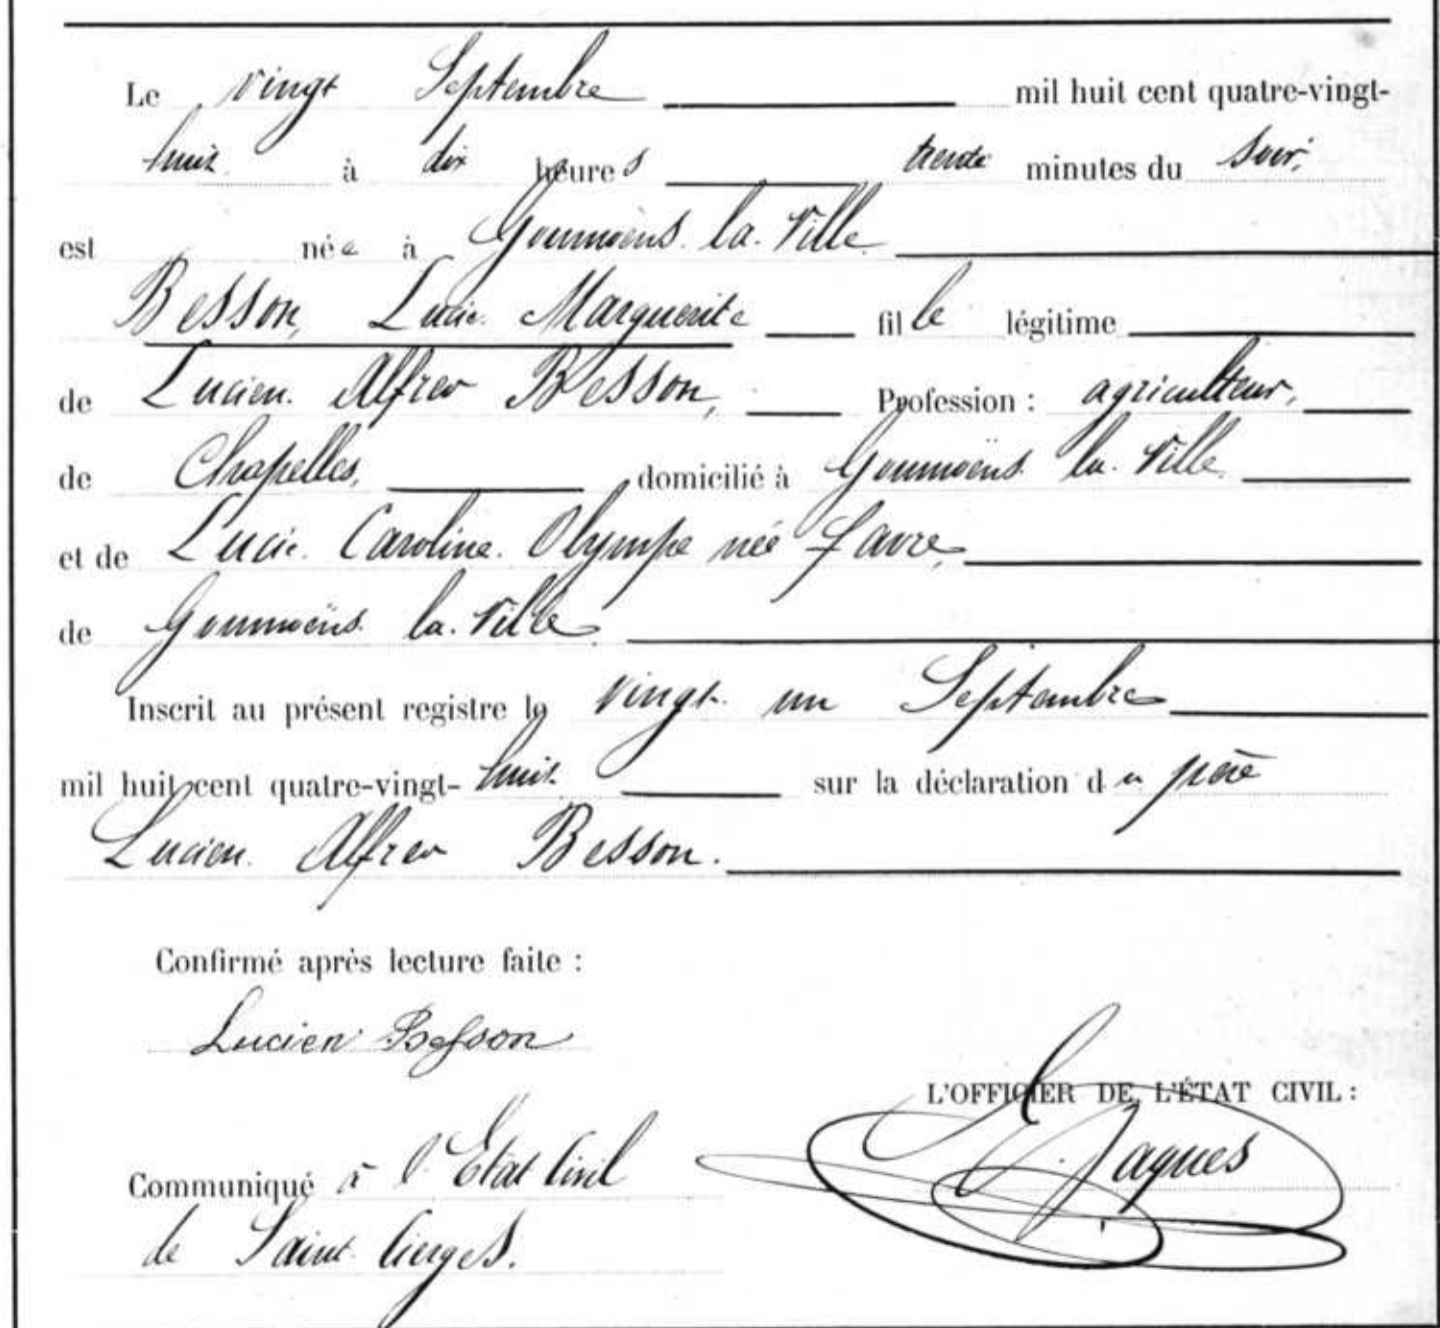 Le vingt Septembre mil huit cent quatre-vingt-
huit à dix heures trente minutes du soir,
est née à Goumoëns. la. Ville
Besson, Lucie. Marguerite fille légitime
de Lucien. Alfred Besson, Profession : agriculteur,
de Chapelles, domicilié à Goumoëns la. Ville
et de Lucie. Caroline. Olympe née Favre,
de Goumoëns la. Ville
Inscrit au présent registre le vingt. un Septembre
mil huit cent quatre-vingt-huit. sur la déclaration du père
Lucien. Alfred Besson.
Confirmé après lecture faite :
Lucien Besson
L'OFFICIER DE L'ÉTAT CIVIL :
Jaques
Communiqué à l'Etat Civil
de Saint Cierges.